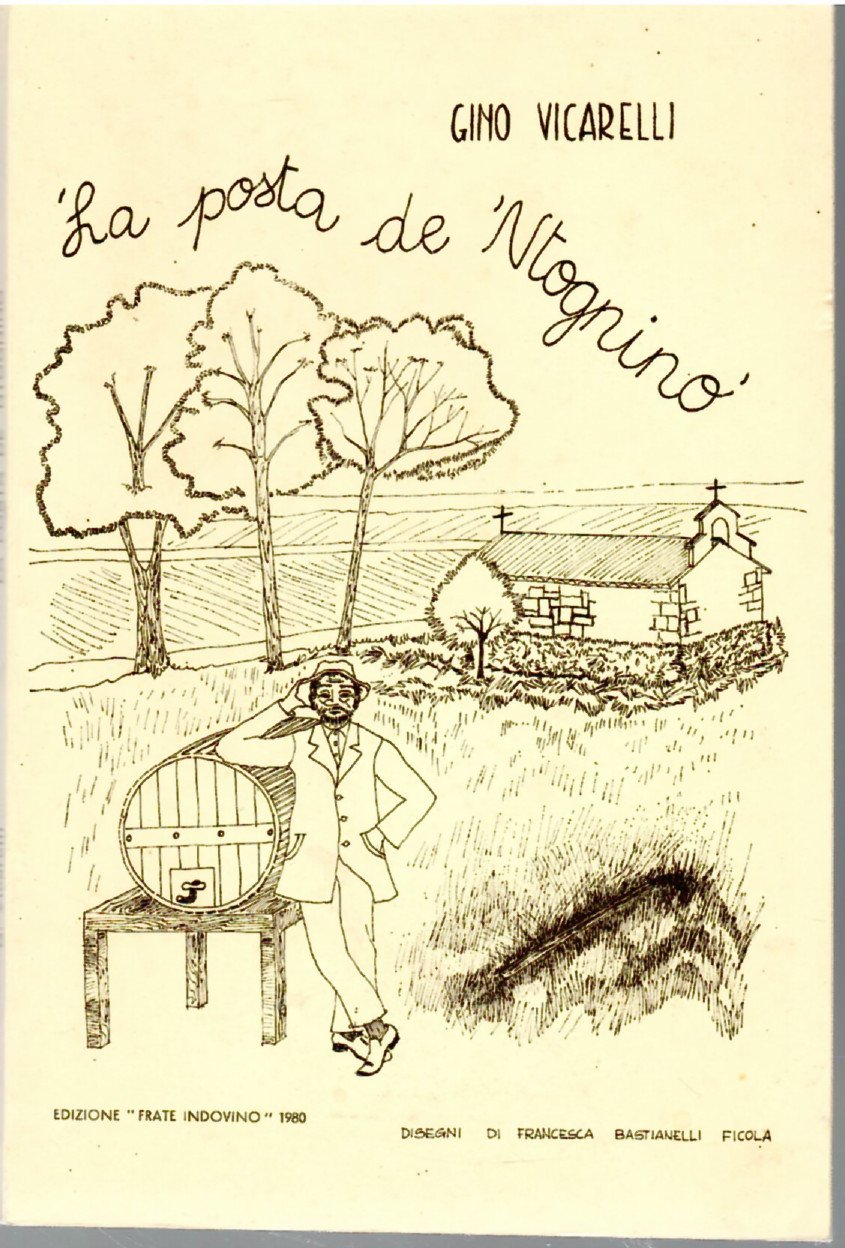 GINO VICARELLI
'La posta de 'Ntognino'
EDIZIONE "FRATE INDOVINO" 1980
DISEGNI DI FRANCESCA BASTIANELLI FICOLA